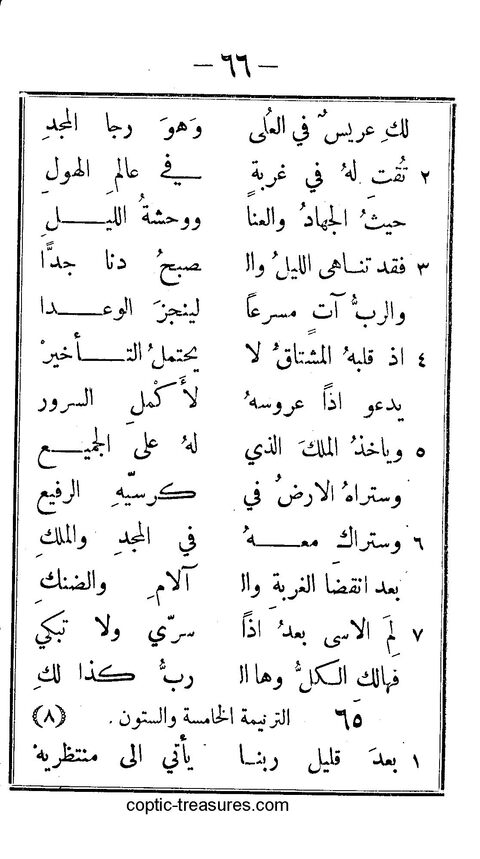 — ٦٦ —
لكِ عريسٌ في العُلى وَهوَ رجا المجدِ
٢ تُقتِ لهُ في غربةٍ في عالمِ الهولِ
حيثُ الجهادُ والعنا ووحشةُ الليلِ
٣ فقد تناهى الليلُ والـ صبحُ دنا جدًّا
والربُّ آتٍ مسرعاً لينجزَ الوعدا
٤ اذ قلبهُ المشتاقُ لا يحتملُ التأخيرْ
يدعو اذًا عروسهُ لأَكْملِ السرور
٥ وياخذُ الملكَ الذي لهُ على الجميع
وستراهُ الارضُ في كرسيّهِ الرفيع
٦ وستراكِ معهُ في المجدِ والملكِ
بعد انقضا الغربةِ والـ آلامِ والضنكِ
٧ لِمَ الاسى بعدُ اذًا سرّي ولا تبكي
فهالك الكلُّ وها الـ ربُّ كذا لكِ
٦٥ الترنيمة الخامسة والستون . (٨)
١ بعدَ قليل ربنا يأتي الى منتظريهْ
coptic-treasures.com